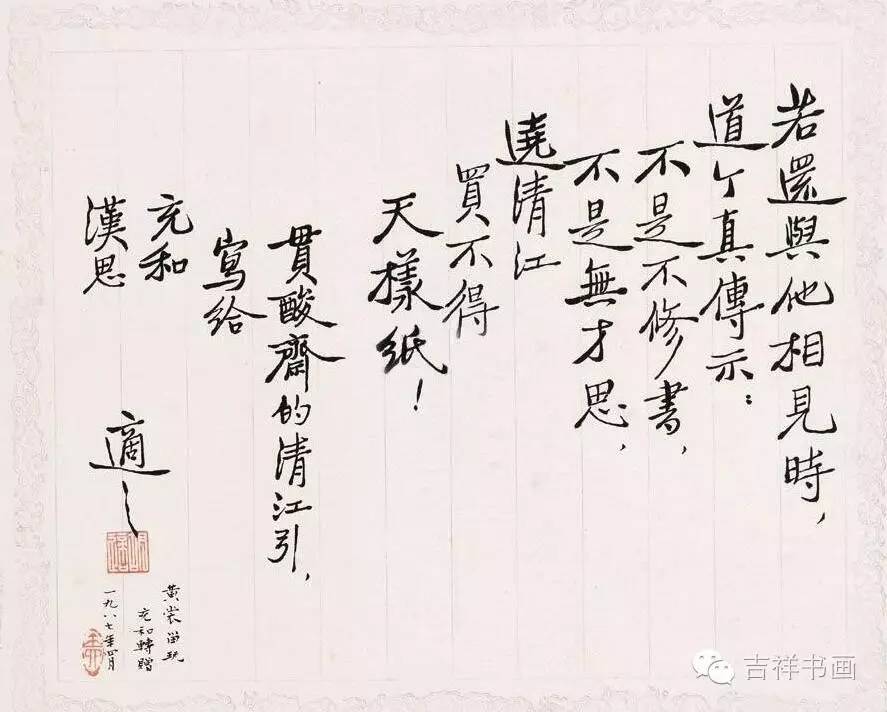 若還與他相見時，
道个真傳示：
不是不修書，
不是無才思，
遶清江
買不得
天樣紙！
貫酸齋的清江引，
寫給
充和
漢思
適之
胡適
黃裳留玩
充和轉贈
一九八七年四月
吉祥书画